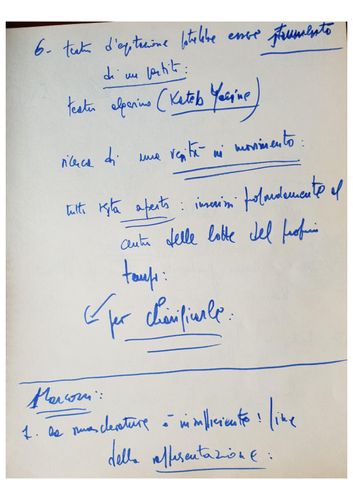 6- teatro d'agitazione potrebbe essere strumento
di un partito:
teatro algerino (Kateb Yacine)
ricerca di una verità in movimento:
tutto resta aperto: inserirsi profondamente al
centro delle lotte del proprio
tempo:
per chiarificarle:
1. la è insufficiente! fine
della rappresentazione: